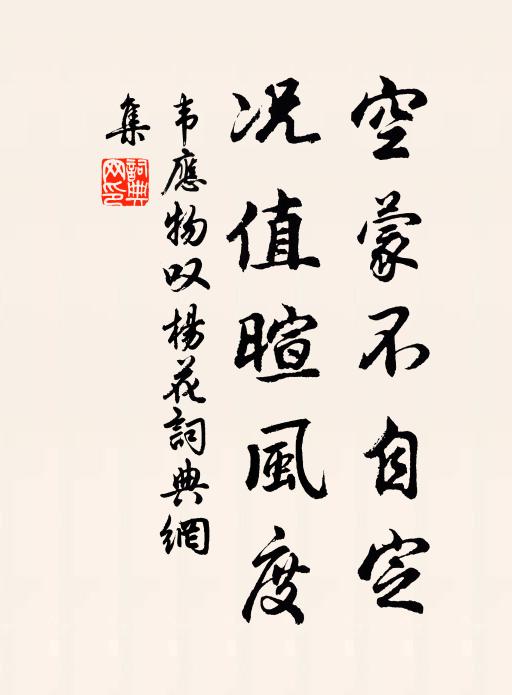 空蒙不自定
况值暄風度
韦應物叹楊花詞典網
集
詞典网印